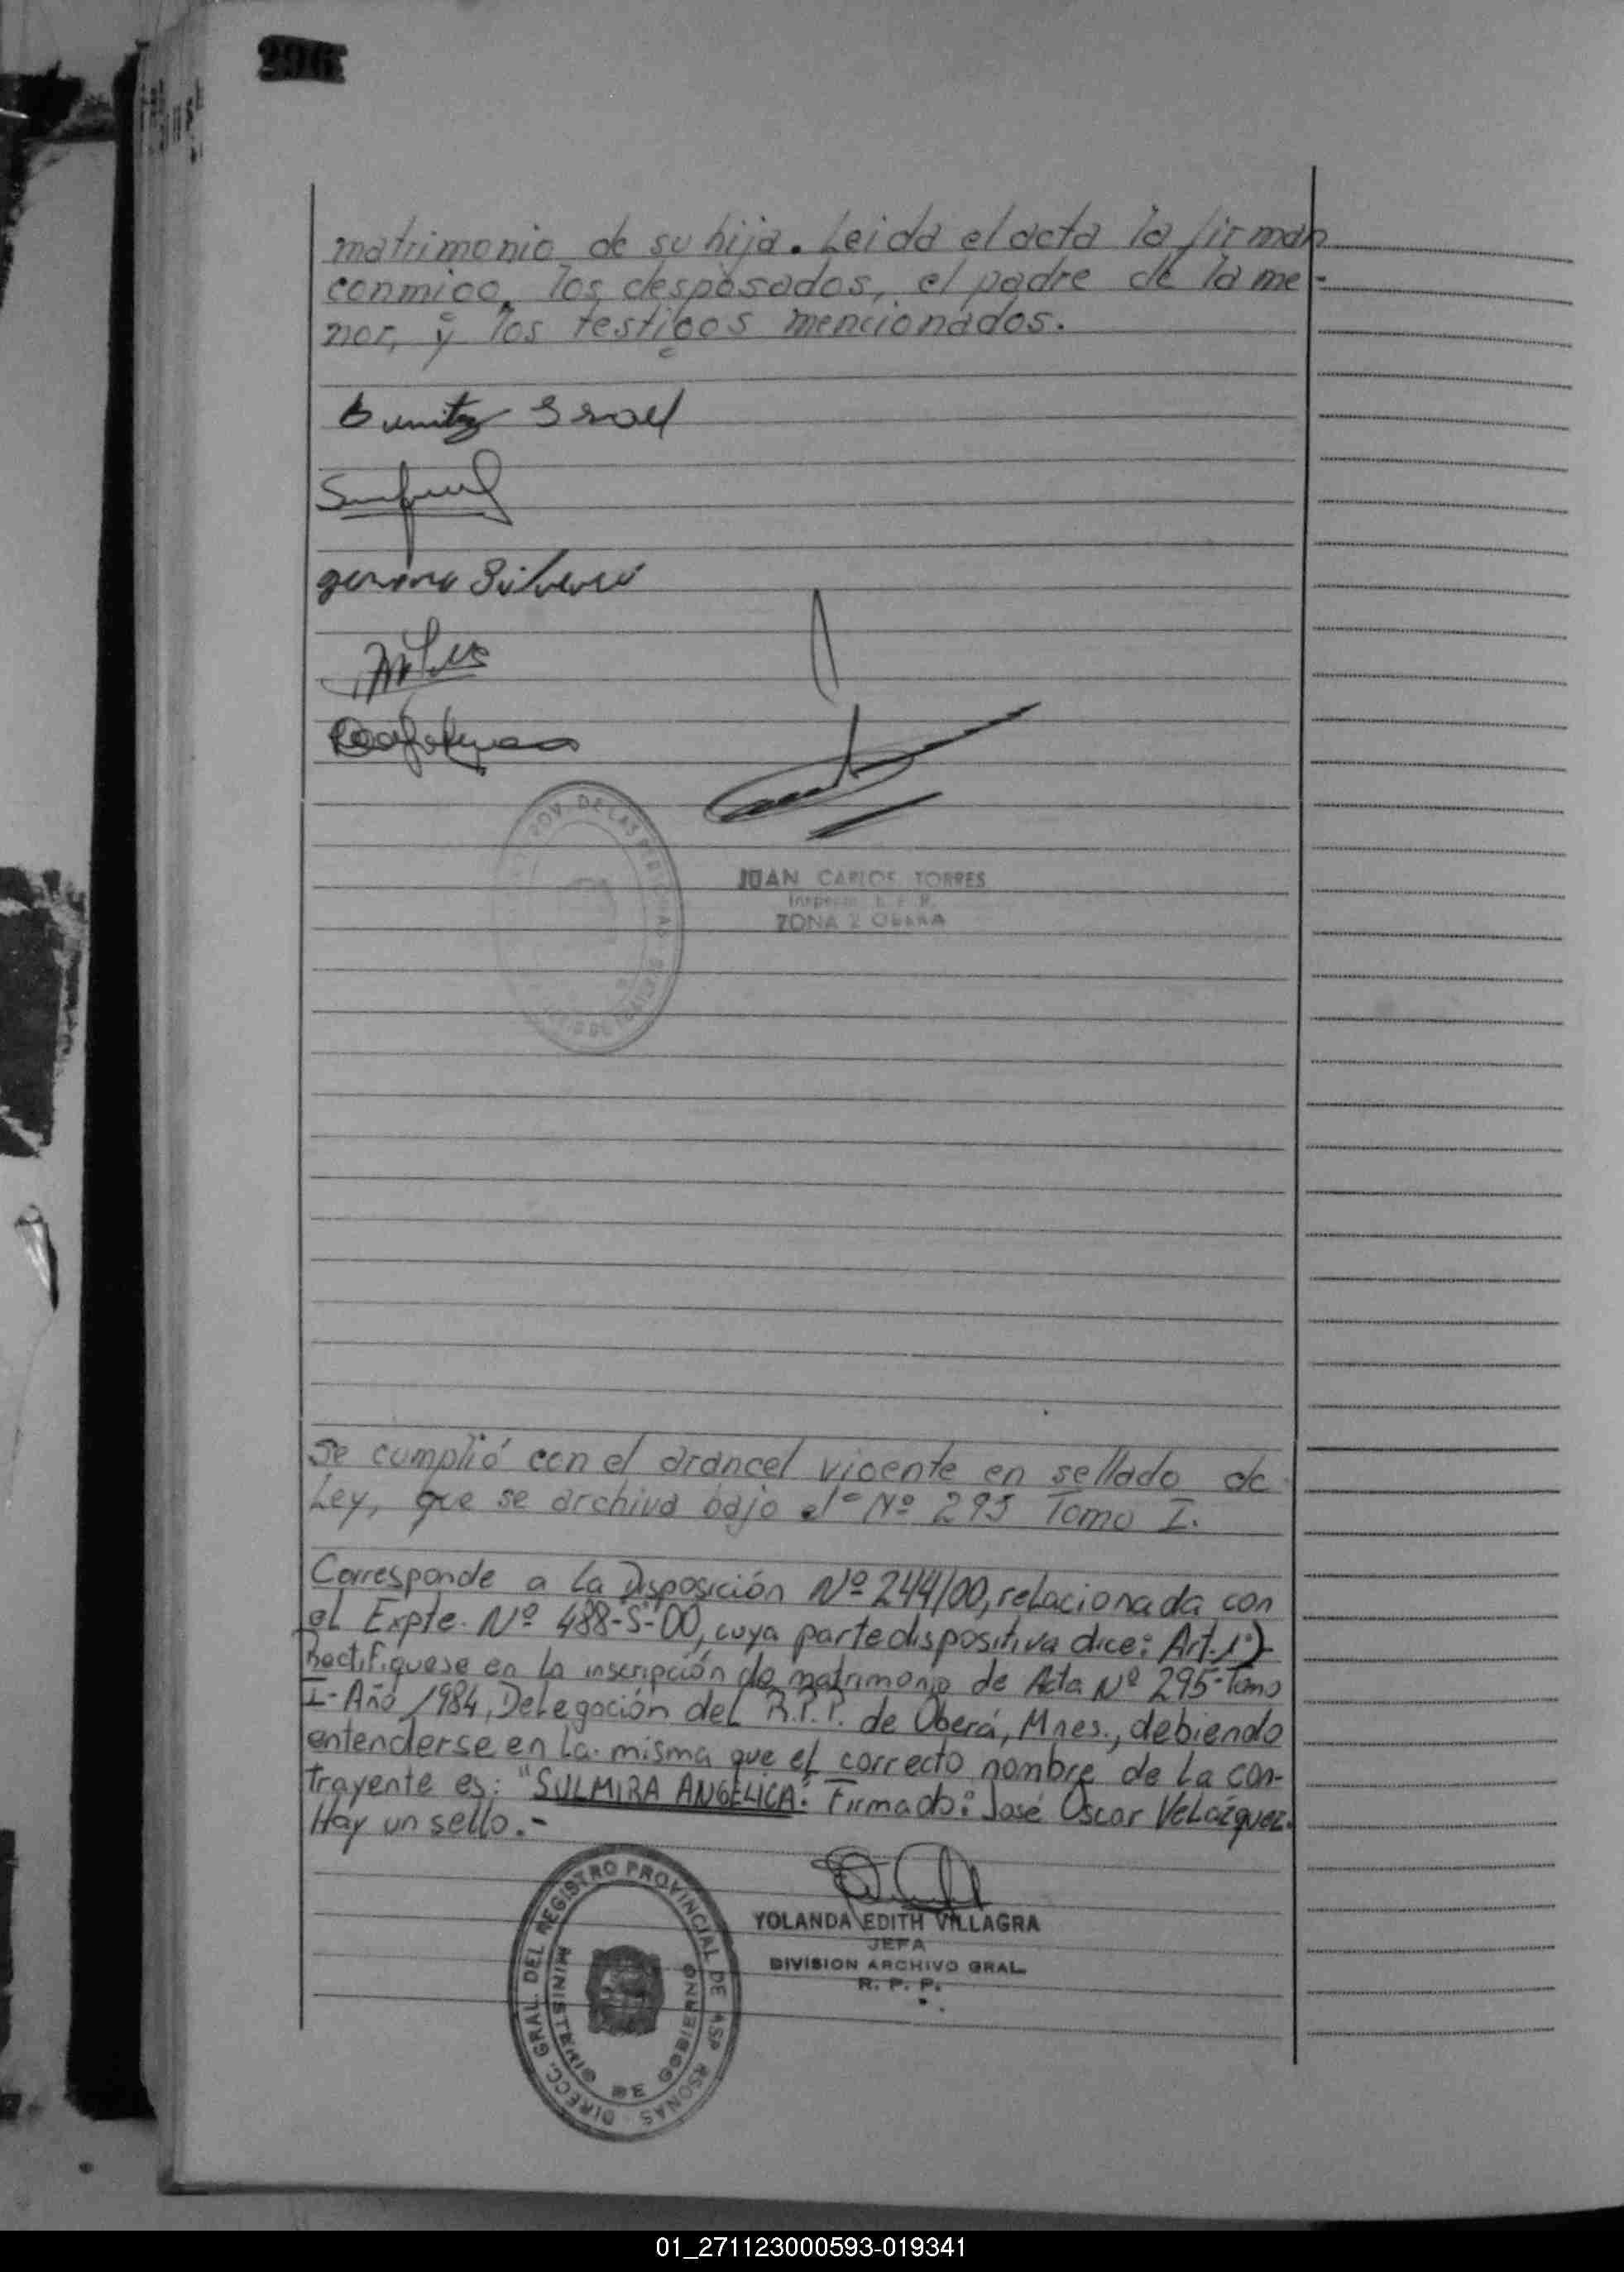 matrimonio de su hija. Leida el acta la firman
conmigo, los desposados, el padre de la me-
nor, y los testigos mencionados.
JUAN CARLOS TORRES
ZONA 2 OBERA
PROV. DE LAS PERSONAS
Se cumplió con el arancel vigente en sellado de
Ley, que se archiva bajo el Nº 295 Tomo I.
Corresponde a la Disposición Nº 244/00, relacionada con
el Expte. Nº 488-S-00, cuya parte dispositiva dice: Art. 1º)-
Rectifíquese en la inscripción de matrimonio de Acta Nº 295-Tomo
I-Año 1984, Delegación del R.P.P. de Oberá, Mnes., debiendo
entenderse en la misma que el correcto nombre de la con-
trayente es: "SULMIRA ANGÉLICA". Firmado: José Oscar Velázquez.
Hay un sello.-
YOLANDA EDITH VILLAGRA
JEFA
DIVISION ARCHIVO GRAL.
R. P. P.
DIRECC. GRAL. DEL REGISTRO PROVINCIAL DE
MINISTERIO DE GOBIERNO
01_271123000593-019341